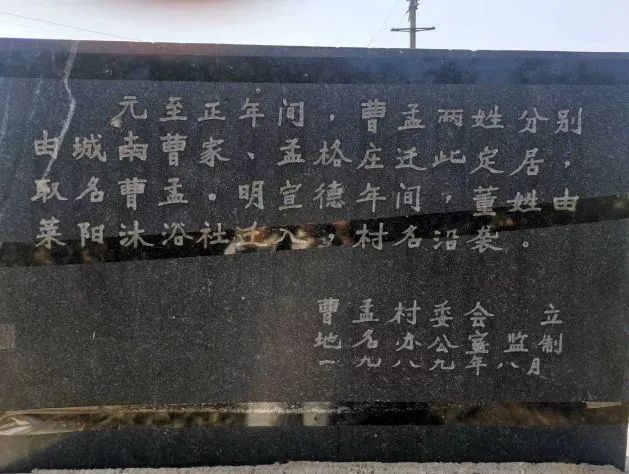 元至正年间，曹孟两姓分别
由城南曹家、孟格庄迁此定居，
取名曹孟。明宣德年间，董姓由
莱阳沐浴社迁入，村名沿袭。
曹孟村委会 立
地名办公室 监制
一九八九年八月